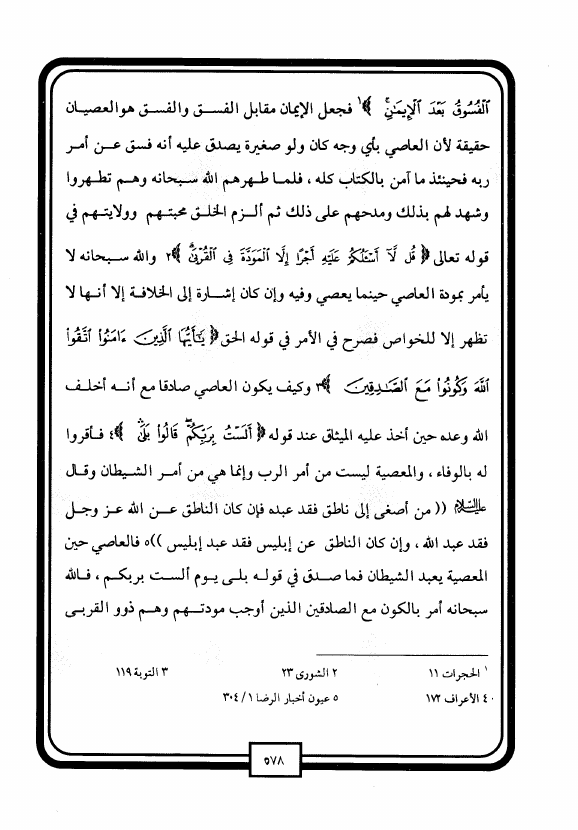 ٱلْفُسُوقُ بَعْدَ ٱلْإِيمَٰنِ ۚ ﴾١ فجعل الإيمان مقابل الفسق والفسق هوالعصيان
حقيقة لأن العاصي بأي وجه كان ولو صغيرة يصدق عليه أنه فسق عن أمر
ربه فحينئذ ما آمن بالكتاب كله ، فلما طهرهم الله سبحانه وهم تطهروا
وشهد لهم بذلك ومدحهم على ذلك ثم ألزم الخلق محبتهم وولايتهم في
قوله تعالى ﴿ قُل لَّآ أَسْـَٔلُكُمْ عَلَيْهِ أَجْرًا إِلَّا ٱلْمَوَدَّةَ فِى ٱلْقُرْبَىٰ ۗ ﴾٢ والله سبحانه لا
يأمر بمودة العاصي حينما يعصي وفيه وإن كان إشارة إلى الخلافة إلا أنها لا
تظهر إلا للخواص فصرح في الأمر في قوله الحق ﴿ يَٰٓأَيُّهَا ٱلَّذِينَ ءَامَنُوا۟ ٱتَّقُوا۟
ٱللَّهَ وَكُونُوا۟ مَعَ ٱلصَّٰدِقِينَ ﴾٣ وكيف يكون العاصي صادقا مع أنه أخلف
الله وعده حين أخذ عليه الميثاق عند قوله ﴿ أَلَسْتُ بِرَبِّكُمْ ۖ قَالُوا۟ بَلَىٰ ۛ ﴾٤ فأقروا
له بالوفاء ، والمعصية ليست من أمر الرب وإنما هي من أمر الشيطان وقال
عليه السلام (( من أصغى إلى ناطق فقد عبده فإن كان الناطق عن الله عز وجل
فقد عبد الله ، وإن كان الناطق عن إبليس فقد عبد إبليس ))٥ فالعاصي حين
المعصية يعبد الشيطان فما صدق في قوله بلى يوم ألست بربكم ، فالله
سبحانه أمر بالكون مع الصادقين الذين أوجب مودتهم وهم ذوو القربى
١ الحجرات ١١ ٢ الشورى ٢٣ ٣ التوبة ١١٩
٤ الأعراف ١٧٢ ٥ عيون أخبار الرضا ١/ ٣٠٤
٥٧٨